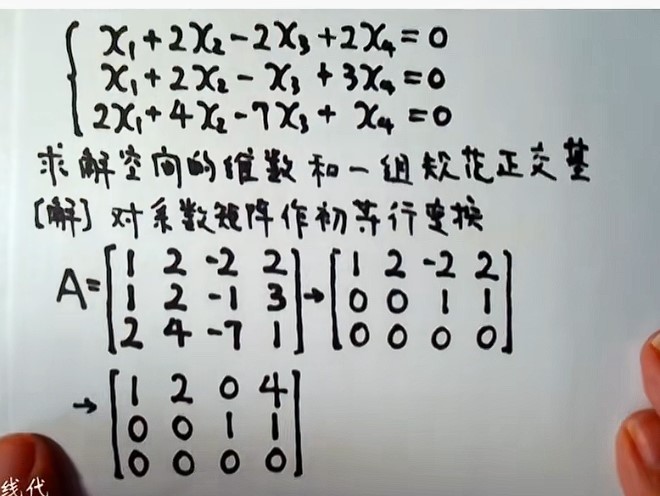 x₁+2x₂-2x₃+2x₄=0
x₁+2x₂-x₃+3x₄=0
2x₁+4x₂-7x₃+x₄=0
求解空间的维数和一组规范正交基
[解] 对系数矩阵作初等行变换
A=[1 2 -2 2; 1 2 -1 3; 2 4 -7 1]→[1 2 -2 2; 0 0 1 1; 0 0 0 0]
→[1 2 0 4; 0 0 1 1; 0 0 0 0]
线代